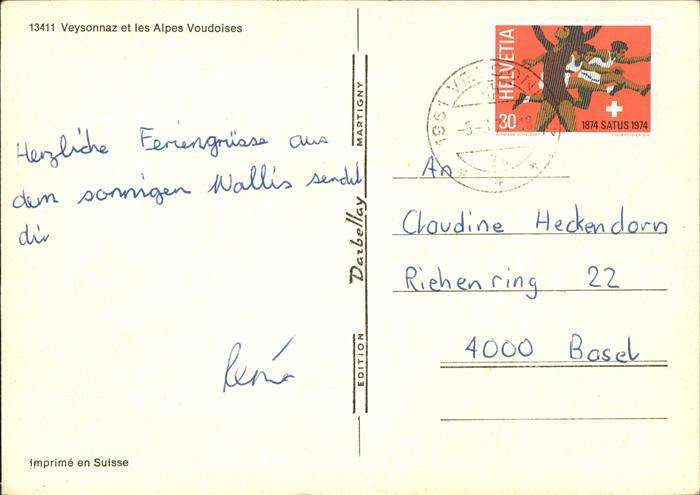 13411 Veysonnaz et les Alpes Voudoises
Herzliche Feriengrüsse aus
dem sonnigen Wallis sendet
dir
René
Imprimé en Suisse
EDITION Darbellay MARTIGNY
HELVETIA
30
1874 SATUS 1974
1961 VEYSONNAZ
An
Claudine Heckendorn
Riehenring 22
4000 Basel